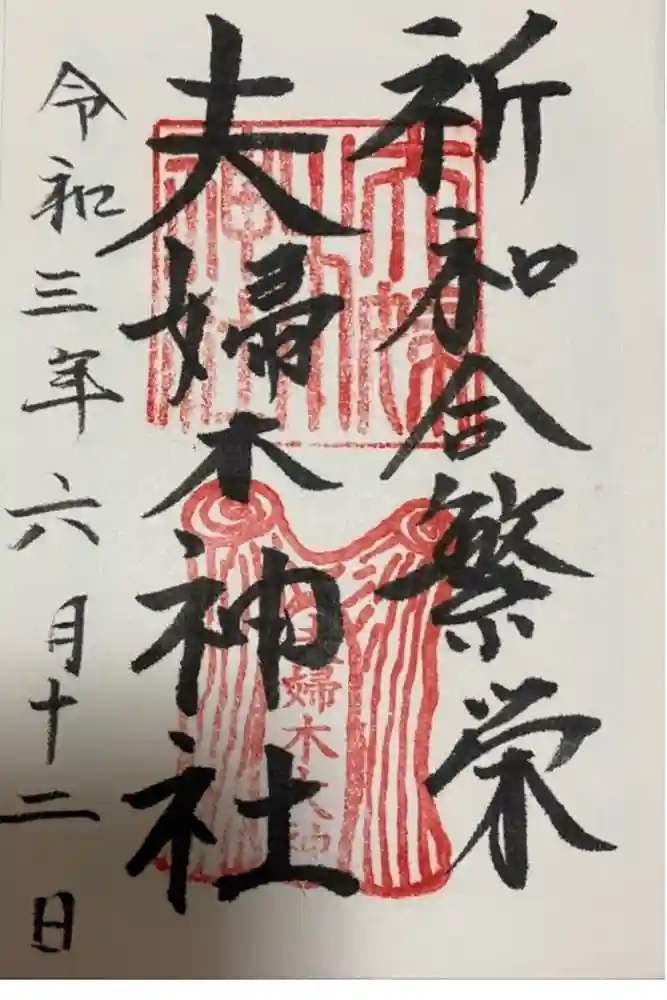 祈和合繁栄
夫婦木神社
夫婦木大神
令和三年六月十二日